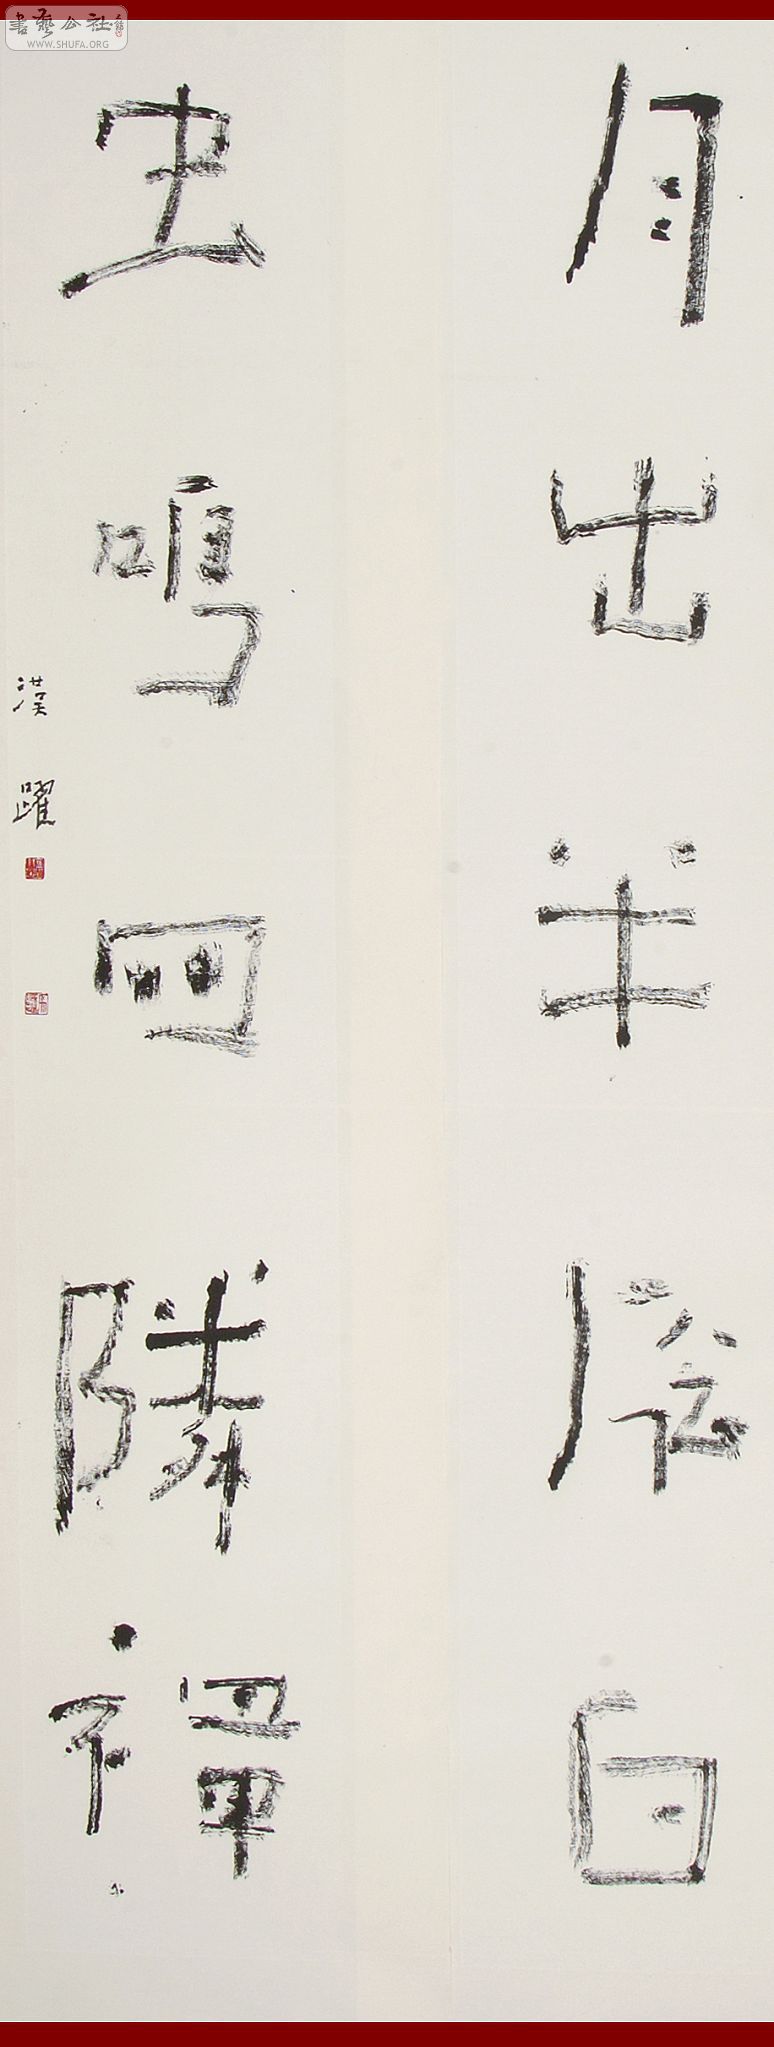 月出半院白
虫鳴四隣禪
漢躍
書藝公社
WWW.SHUFA.ORG